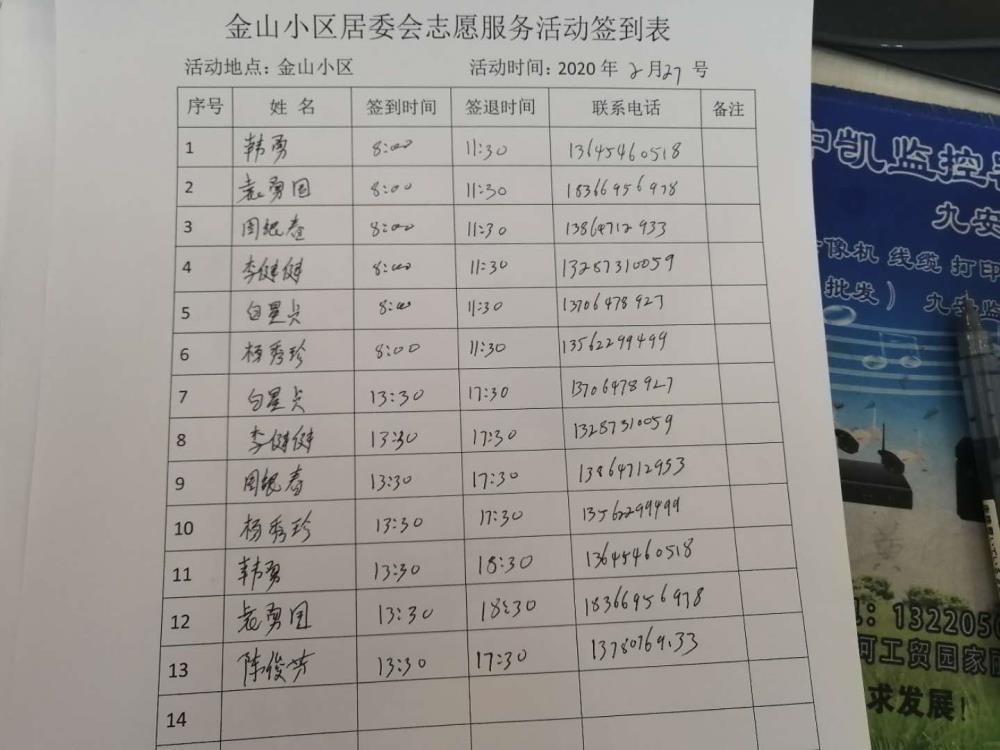 金山小区居委会志愿服务活动签到表
活动地点：金山小区 活动时间：2020 年 2月27 号
序号 姓 名 签到时间 签退时间 联系电话 备注
1 韩勇 8:00 11:30 13645460518
2 袁勇国 8:00 11:30 18366956978
3 周银春 8:00 11:30 13864712933
4 李健健 8:00 11:30 13287310059
5 白星贞 8:00 11:30 13706478927
6 杨秀珍 8:00 11:30 13562299499
7 白星贞 13:30 17:30 13706478927
8 李健健 13:30 17:30 13287310059
9 周银春 13:30 17:30 13864712953
10 杨秀珍 13:30 17:30 13562299499
11 韩勇 13:30 18:30 13645460518
12 袁勇国 13:30 18:30 18366956978
13 陈俊芳 13:30 17:30
14
中凯监控
九安
像机 线缆 打印
批发） 九安监
：132205
河工贸园家
求发展！